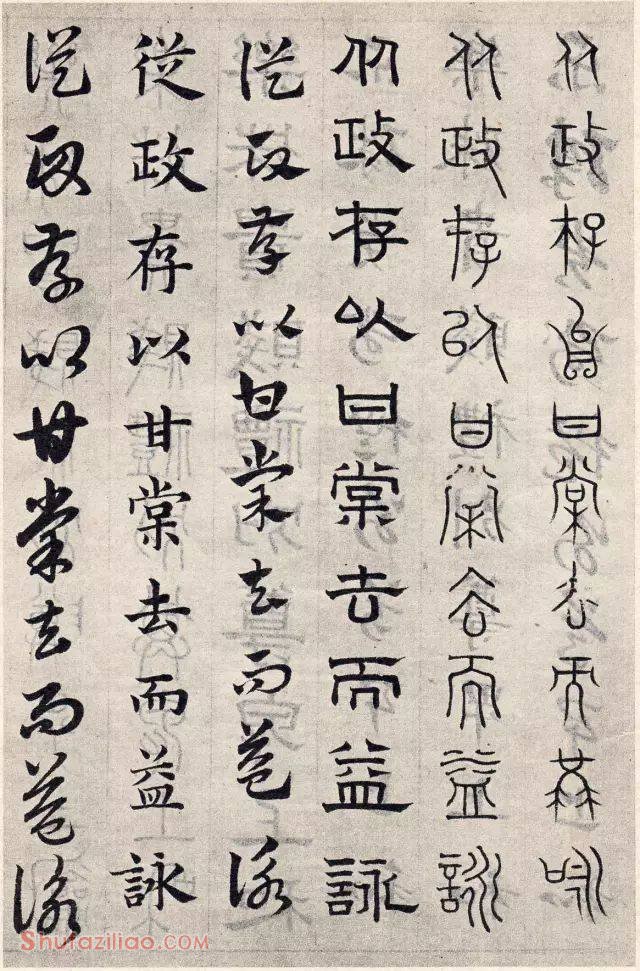 从政存以甘棠去而益詠
从政存以甘棠去而益詠
从政存以甘棠去而益詠
從政存以甘棠去而益詠
從政存以甘棠去而益詠
從政存以甘棠去而益詠
Shufaziliao.com